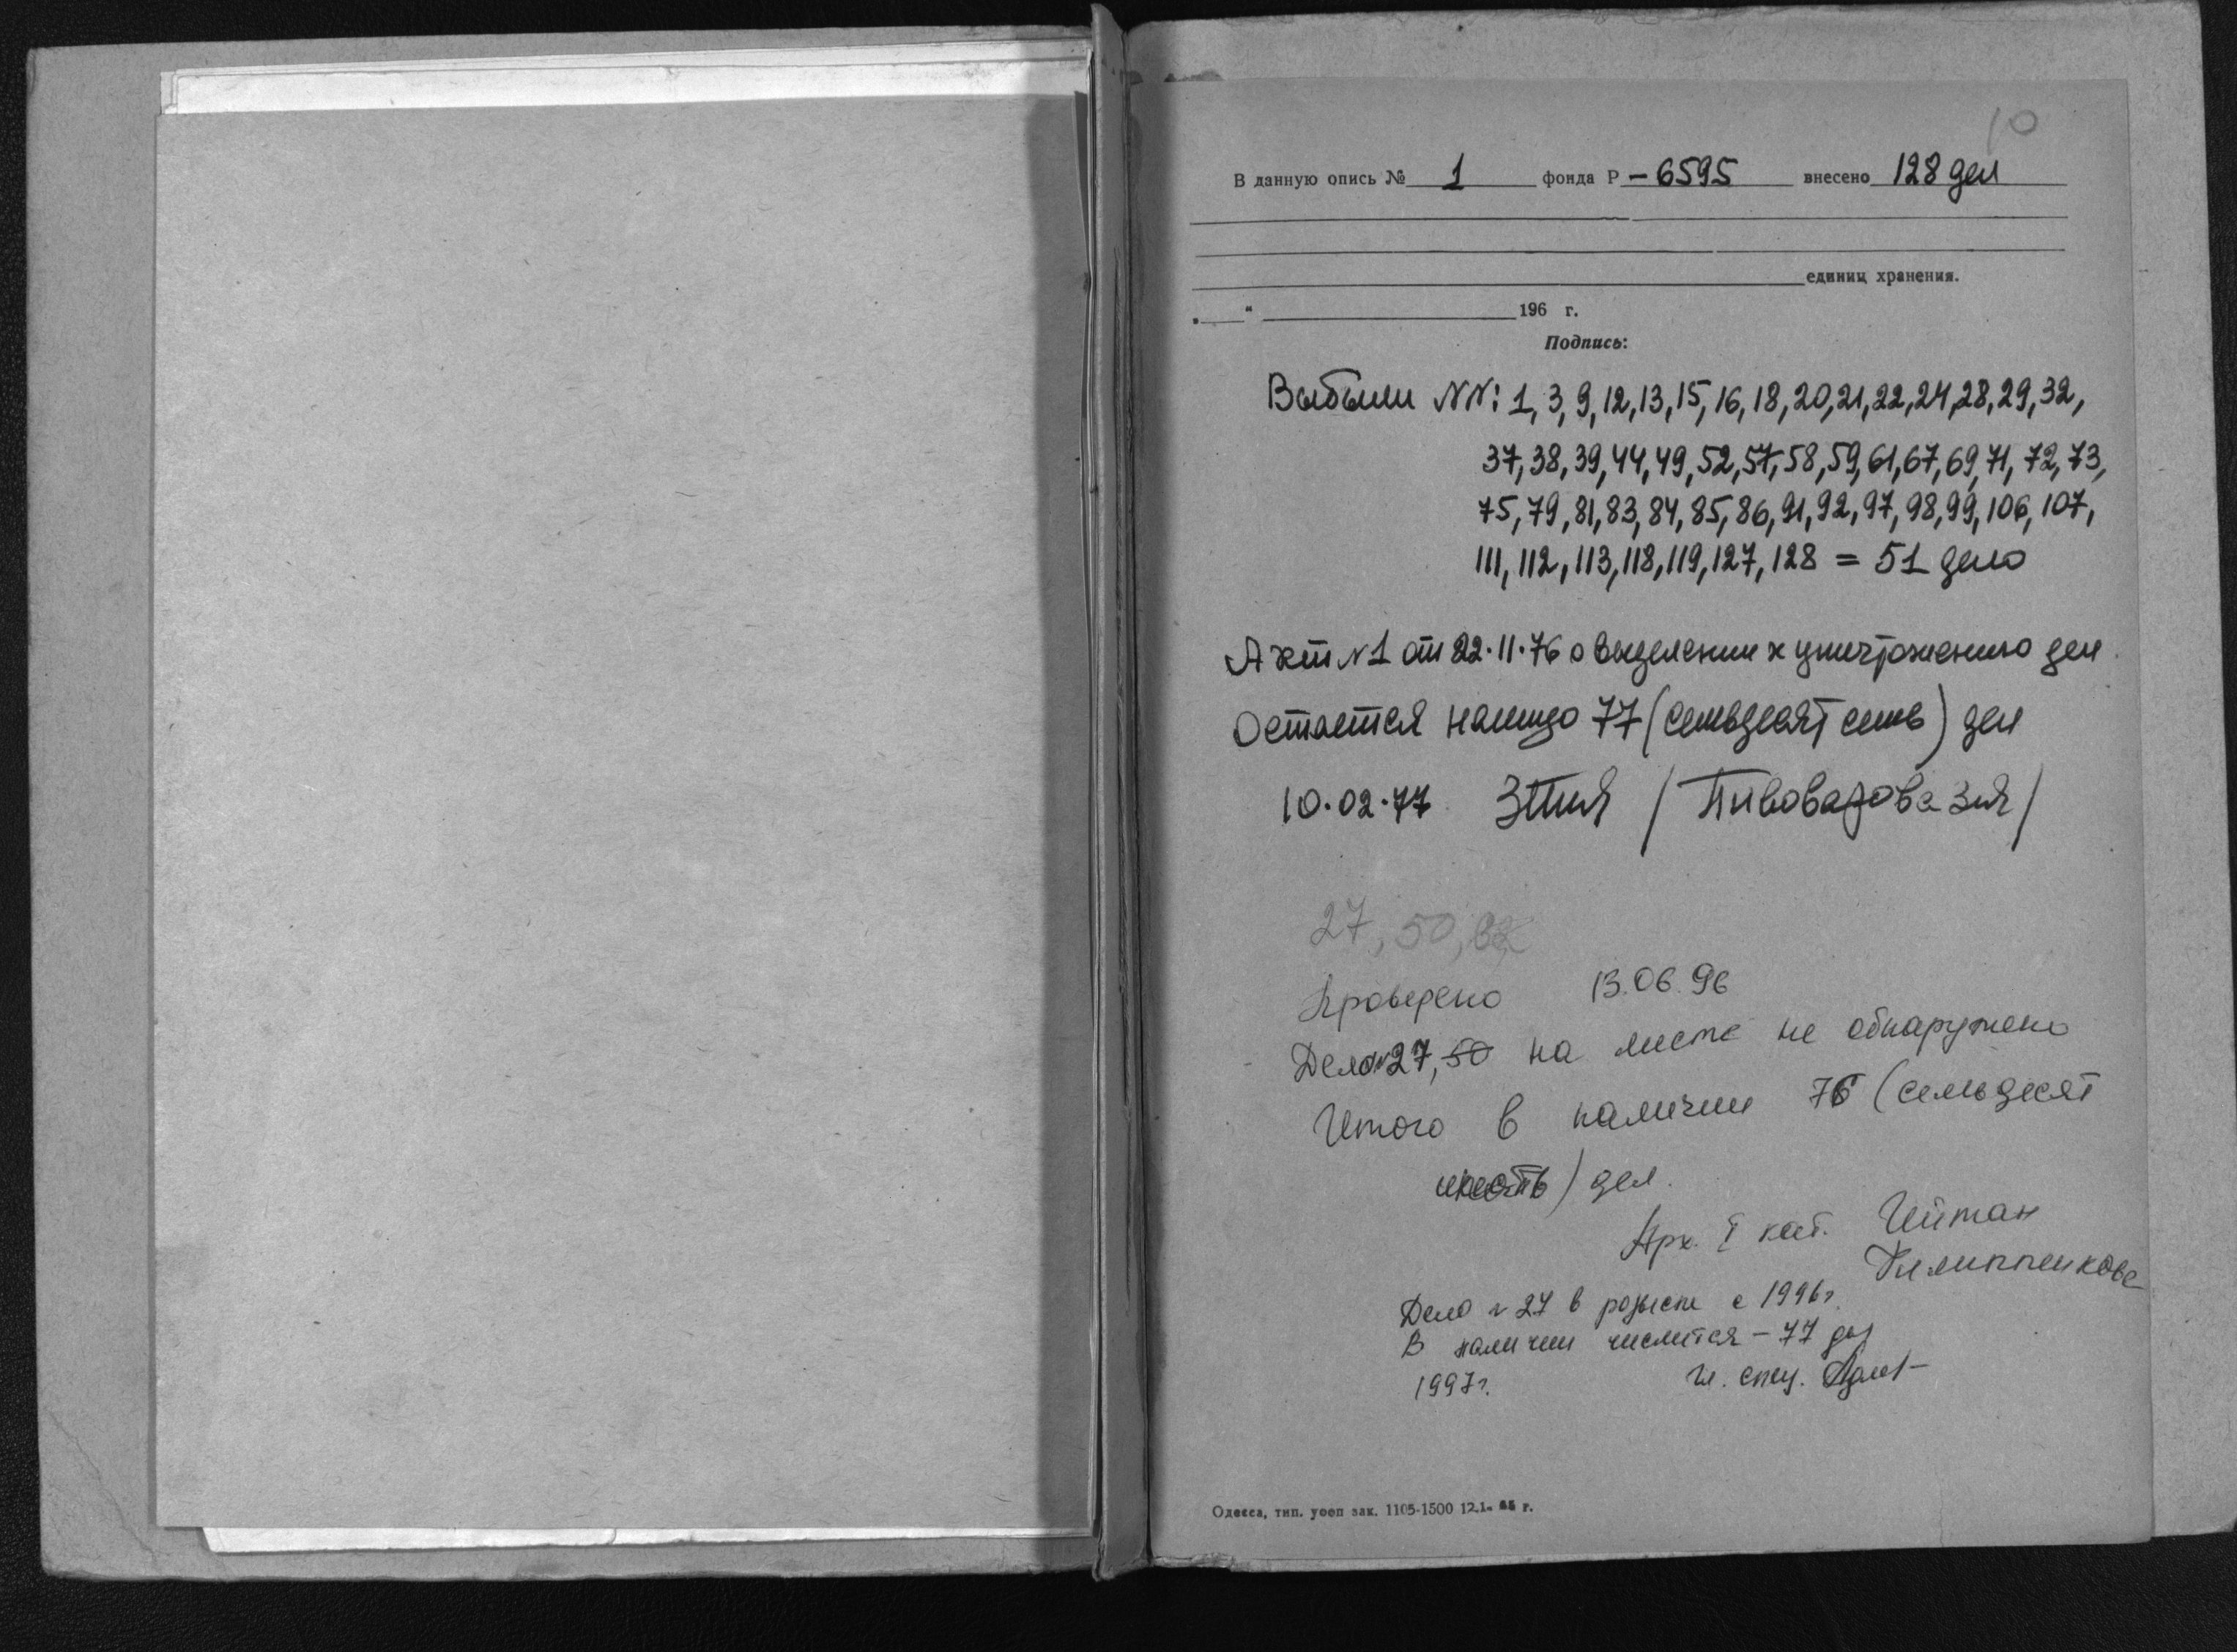 10
В данную опись № 1 фонда Р -6595 внесено 128 дел
единиц хранения.
„ “ 196 г.
Подпись:
Выбыли NN: 1, 3, 9, 12, 13, 15, 16, 18, 20, 21, 22, 24, 28, 29, 32,
37, 38, 39, 44, 49, 52, 57, 58, 59, 61, 67, 69, 71, 72, 73,
75, 79, 81, 83, 84, 85, 86, 91, 92, 97, 98, 99, 106, 107,
111, 112, 113, 118, 119, 127, 128 = 51 дело
Акт N1 от 22.11.76 о выделении к уничтожению дел
Остается налицо 77 (семьдесят семь) дел
10.02.77 / Пивоварова ЗИЯ /
27, 50,
Проверено 13.06.96
Дело N27, 50 на месте не обнаружено
Итого в наличии 76 (семьдесят
шесть) дел.
Арх. I кат.
Филиппенкова
Дело N 27 в розыске с 1996г.
В наличии числится - 77 дел
1997г. Гл. спец.
Одесса, тип. уооп зак. 1105-1500 12.1- г.